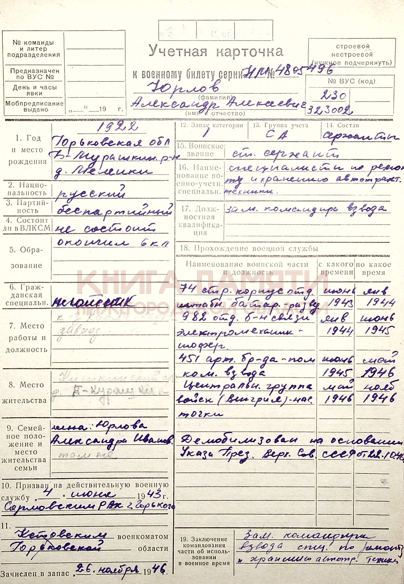 № команды и литер подразделения
Предназначен по ВУС №
День и часы явки
Мобпредписание выдано
"  "  19  г.
Учетная карточка
к военному билету серии НМ № 4805496
Юрлов
(фамилия)
Александр Алексеевич
(имя, отчество)
строевой
нестроевой
(нужное подчеркнуть)
№ ВУС (код)
230
323002
1. Год и место рождения
1922
Горьковская обл
Б-Мурашкин. р-н
2. Национальность
русский
3. Партийность
беспартийный
4. Состоит ли в ВЛКСМ
не состоит
5. Образование
окончил 6 кл
6. Гражданская специальн.
7. Место работы и должность
8. Место жительства
9. Семейное положение и место жительства семьи
жена: Юрлова
Александра Иванов
10. Призван на действительную военную службу „ 4 " июня 1943 г.
Сормовским РВК г. Горького
11. Кстовским военкоматом
Горьковской области
Зачислен в запас „ 26. ноября 1946
12. Запас категории
I
13. Группа учета
СА
14. Состав
сержанты
15. Воинское звание
ст. сержант
16. Наименование военно-учетн. специальн.
специалисты по ремонту и хранению автотракт. техники.
17. Должностная квалификация
зам. командира взвода
18. Прохождение военной службы
Наименование воинской части и должность
С какого время
По какое время
74 стр. корпус отд.
июнь 1943
янв 1944
982 отд. б-н связи
янв 1944
июнь 1945
электромеханик-шофер
451 арт. бр-да - пом. ком. взвода
июнь 1945
май 1946
Центральн. группа войск (Венгрия)
май 1946
нояб 1946
Демобилизован на основании
Указа През. Верх. Сов. СССР
19. Заключение командования части об использовании в военное время
Зам. командира взвода спец. по ремонту и хранению автотр. техники
КНИГА ПАМЯТИ